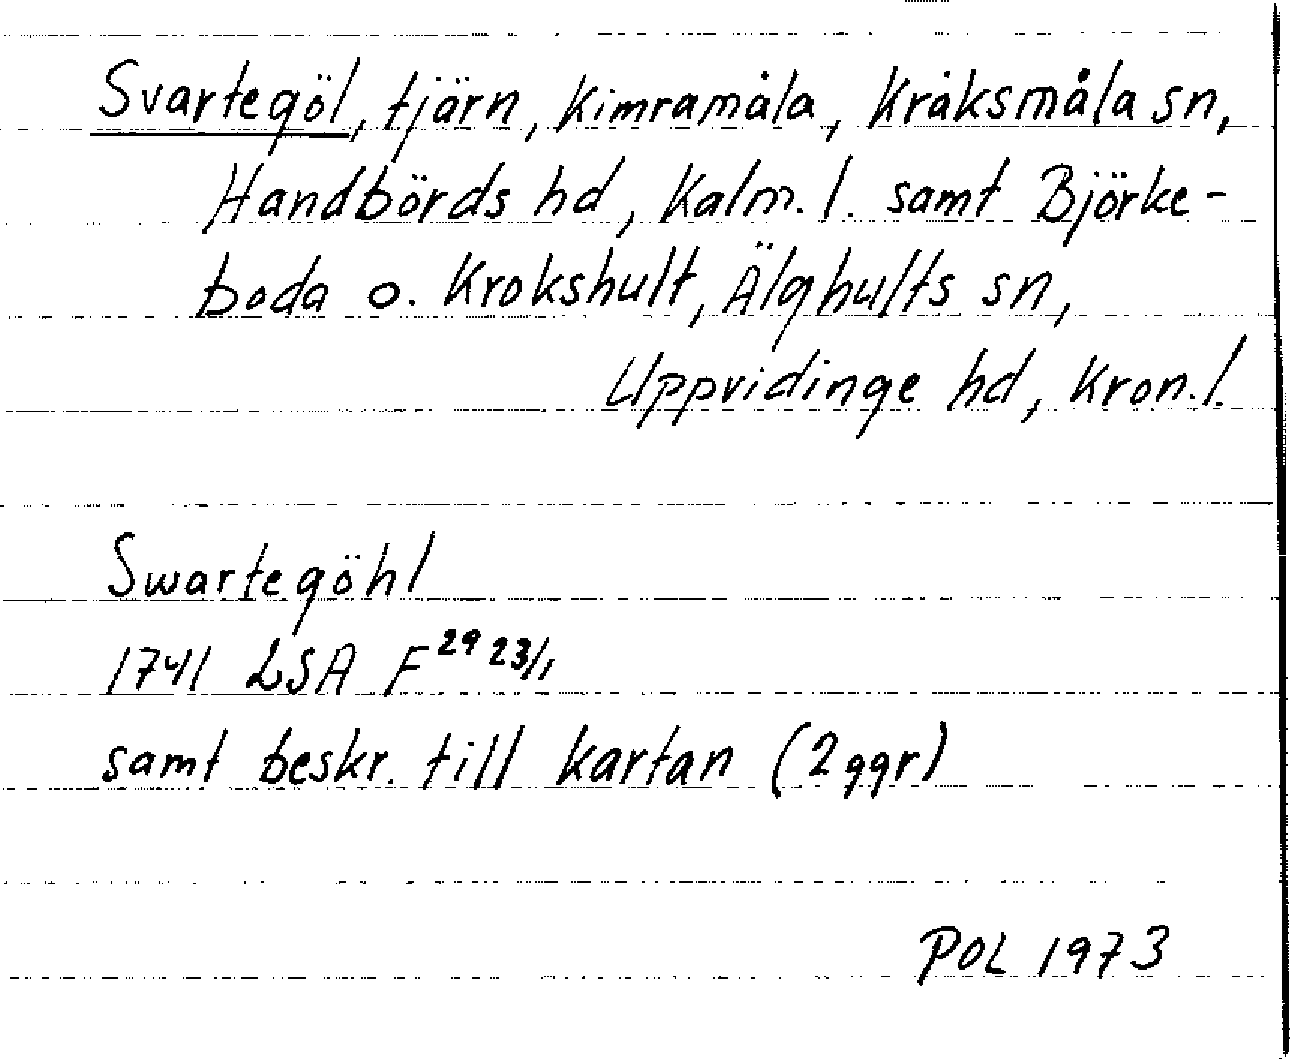 Svartegöl, tjärn, Kimramåla, Kråksmåla sn,
Handbörds hd, Kalm. l. samt Björke-
boda o. Krokshult, Älghults sn,
Uppvidinge hd, Kron. l.
Swartegöhl
1741 LSA F 29 23/1
samt beskr. till kartan (2 ggr)
POL 1973